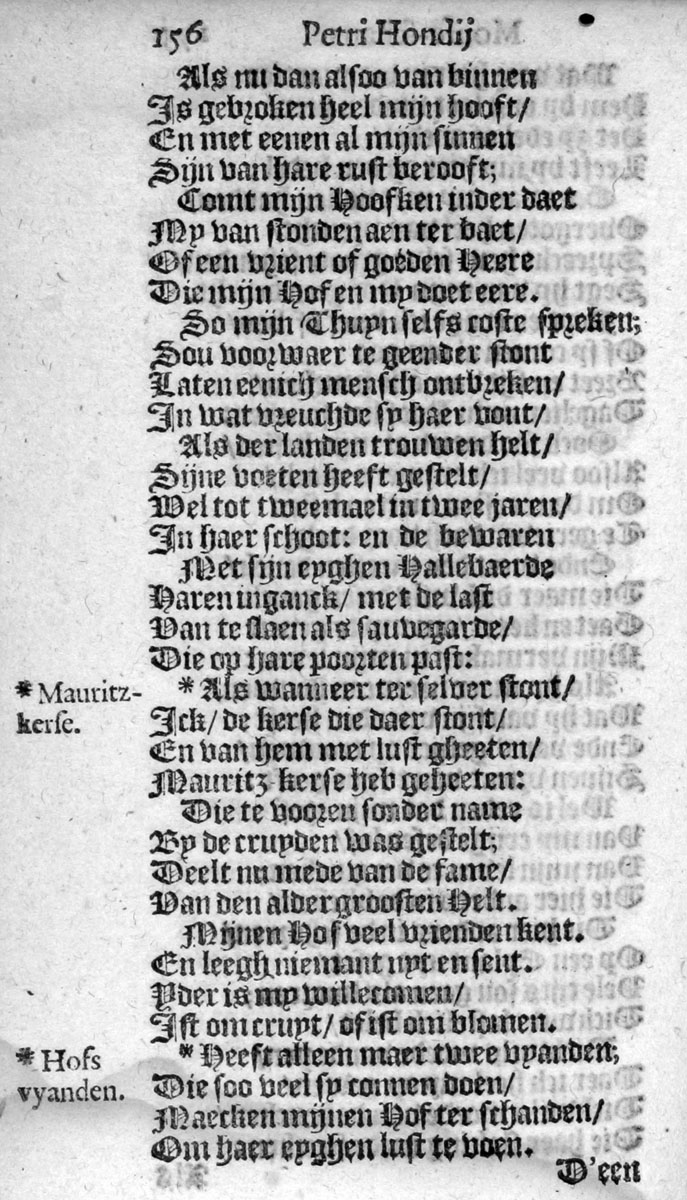 156 Petri Hondij
Als nu dan alsoo van binnen
Is gebroken heel mijn hooft/
En met eenen al mijn sinnen
Sijn van hare rust berooft;
Comt mijn Hoofken inder daet
My van stonden aen ter baet/
Of een vrient of goeden Heere
Die mijn Hof en my doet eere.
So mijn Thuyn selfs coste spreken;
Sou voorwaer te geender stont
Laten eenich mensch ontbreken/
In wat vreuchde sy haer vont/
Als der landen trouwen helt/
Sijne voeten heeft gestelt/
Wel tot tweemael in twee jaren/
In haer schoot: en de bewaren
Met sijn eyghen Hallebaerde
Haren inganck/ met de last
Van te slaen als sauvegarde/
Die op hare poorten past:
* Mauritz-
kerse.
* Als wanneer ter selver stont/
Ick/ de kerse die daer stont/
En van hem met lust gheeten/
Mauritz kerse heb geheeten:
Die te vooren sonder name
By de cruyden was gestelt;
Deelt nu mede van de fame/
Van den aldergroosten Helt.
Mijnen Hof veel vrienden kent.
En leegh niemant uyt en sent.
Yder is my willecomen/
Ist om cruyt/ of ist om blomen.
* Hofs
vyanden.
* Heeft alleen maer twee vyanden;
Die soo veel sy connen doen/
Maecken mijnen Hof ter schanden/
Om haer eyghen lust te voen.
D'een